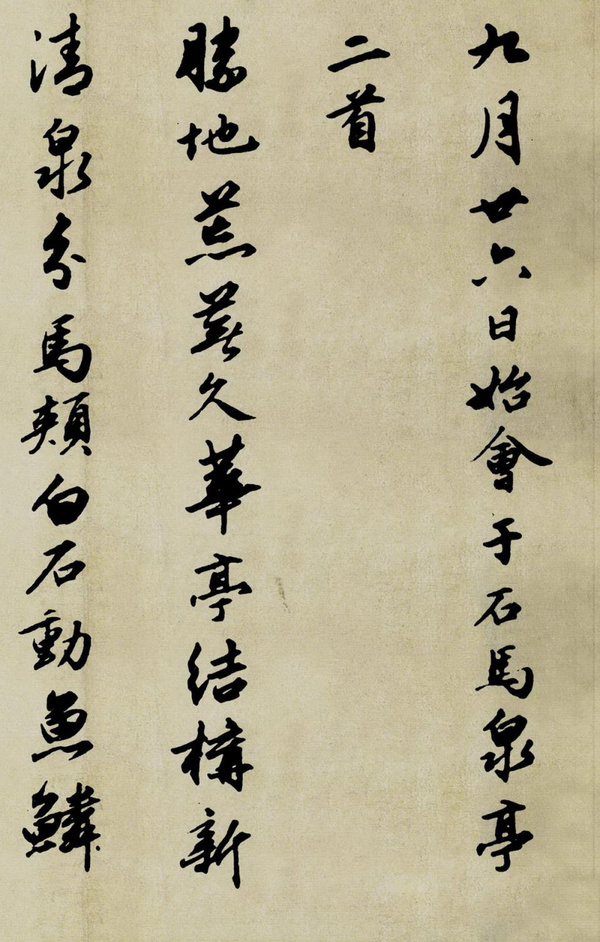 九月廿六日始會于石馬泉亭
二首
勝地荒蕪久華亭結構新
清泉分馬頰白石動魚鱗